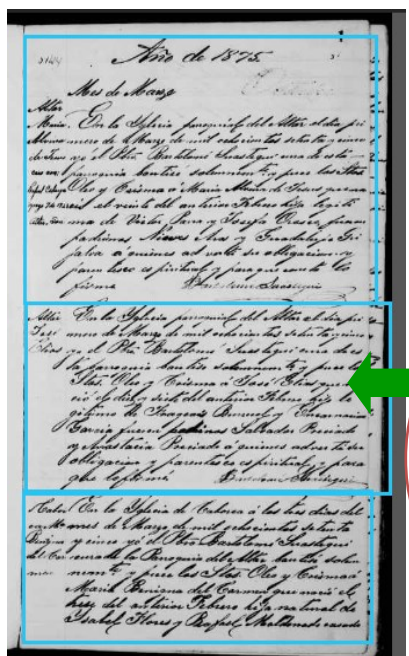 Año de 1875.
Mes de Marzo
Altar
Maria En la Yglesia parroquial del Altar el dia pri
mero de Marzo de mil ochocientos setenta y cinco
de Jesus yo el Pbro. Bartolomé Suastegui cura de esta
parroquia bautice solemnemente y puse los Stos.
Oleo y Crisma á Maria de Jesus que na
ció el veinte del anterior Febrero hija legiti
ma de Victor y Josefa fueron
padrinos Nieves y Guadalupe Gri
jalva a quienes advertí su obligacion y
parentesco espiritual y para que conste lo
firmé Bartolomé Suastegui
Altar En la Yglesia parroquial del Altar el dia pri
José mero de Marzo de mil ochocientos setenta y cinco
Elias yo el Pbro. Bartolomé Suastegui cura de es
ta parroquia bautice solemnemente y puse los
Stos. Oleo y Crisma á José Elias que na
ció el dia diez y siete del anterior Febrero hijo le
gitimo de Francisco y Encarnacion
Garcia fueron padrinos Salvador Preciado
y Anastacia Preciado á quienes advertí su
obligacion y parentesco espiritual y para
que lo firmé Bartolomé Suastegui
En la Yglesia de Caborca á los tres dias del
mes de Marzo de mil ochocientos setenta
Benigna y cinco yo el Pbro. Bartolomé Suastegui
del Car cura de la Parroquia del Altar bautice solem
men nemente y puse los Stos. Oleo y Crisma á
Maria Benigna del Carmen que nació el
trece del anterior Febrero hija natural de
Isabel Flores y Rafael Maldonado casado